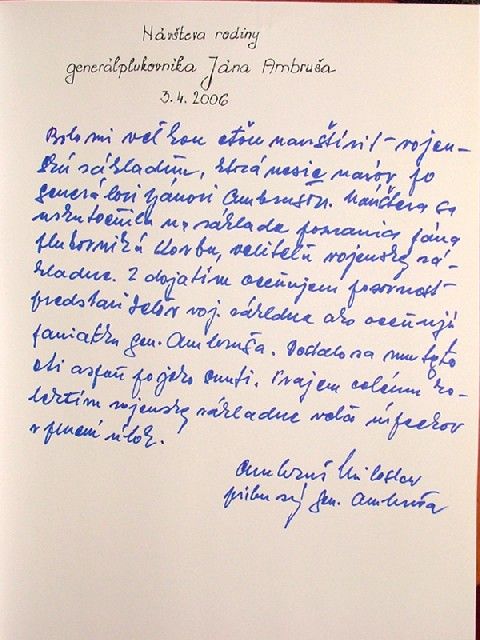 Návšteva rodiny
generálplukovníka Jána Ambruša
3.4.2006
Bolo mi veľkou cťou navštíviť vojen-
skú základňu, ktorá nesie názov po
generálovi Jánovi Ambrušovi. Návšteva sa
uskutočnila na základe pozvania pána
plukovníka, veliteľa vojenskej zá-
kladne. S dojatím oceňujem pozornosť
predstaviteľov voj. základne ako oceňujú
pamiatku gen. Ambruša. Dostalo sa mu tejto
cti aspoň po jeho smrti. Prajem celému ko-
lektívu vojenskej základne veľa úspechov
v plnení úloh.
Ambruš Miloslav
príbuzný gen. Ambruša